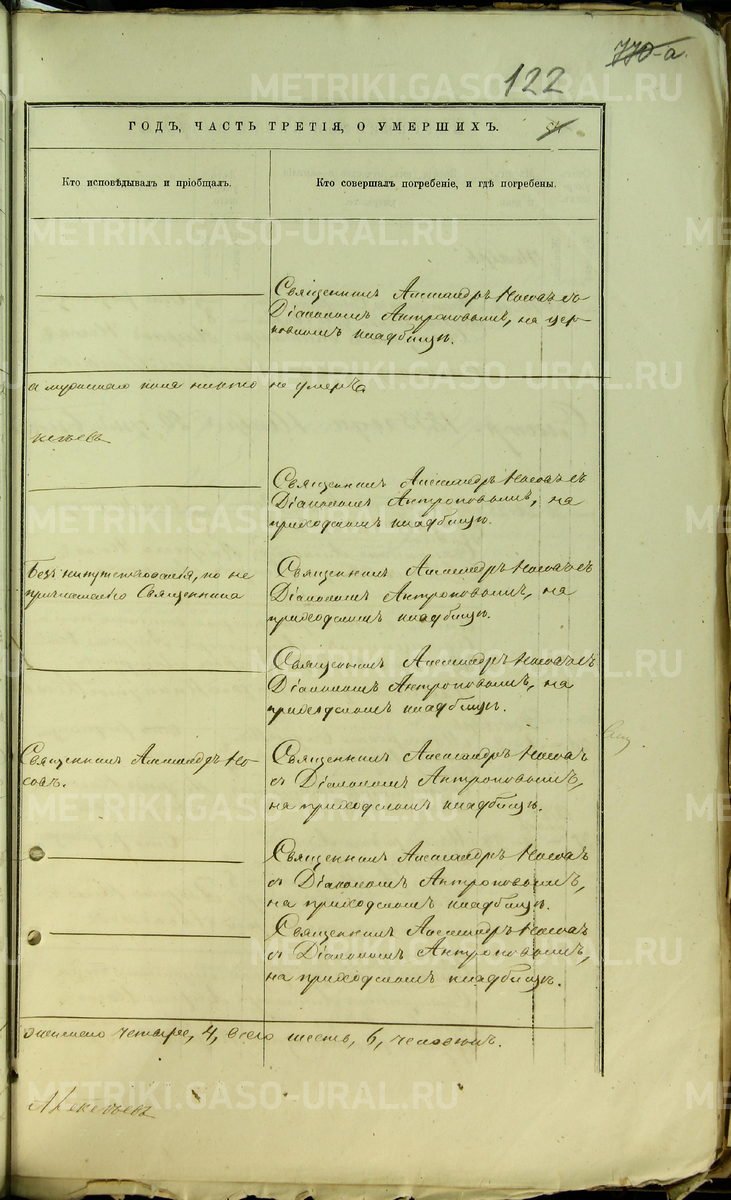 770-а.
122
ГОДЪ, ЧАСТЬ ТРЕТІЯ, О УМЕРШИХЪ.
Кто исповѣдывалъ и пріобщалъ.
Кто совершалъ погребеніе, и гдѣ погребены.
Священникъ Александръ Носовъ съ
Діакономъ Антроповымъ, на цер-
ковномъ кладбищѣ.
а мужескаго пола никто не умеръ
Священникъ Александръ Носовъ съ
Діакономъ Антроповымъ, на
приходскомъ кладбищѣ.
Безъ напутствованія, по не
приглашенію Священника
Священникъ Александръ Носовъ съ
Діакономъ Антроповымъ, на
приходскомъ кладбищѣ.
Священникъ Александръ Носовъ съ
Діакономъ Антроповымъ, на
приходскомъ кладбищѣ.
Священникъ Александръ Но-
совъ.
Священникъ Александръ Носовъ
съ Діакономъ Антроповымъ,
на приходскомъ кладбищѣ.
Священникъ Александръ Носовъ
съ Діакономъ Антроповымъ,
на приходскомъ кладбищѣ.
Священникъ Александръ Носовъ
съ Діакономъ Антроповымъ,
на приходскомъ кладбищѣ.
женскаго четыре, 4, всего шесть, 6, человѣкъ.
METRIKI.GASO-URAL.RU